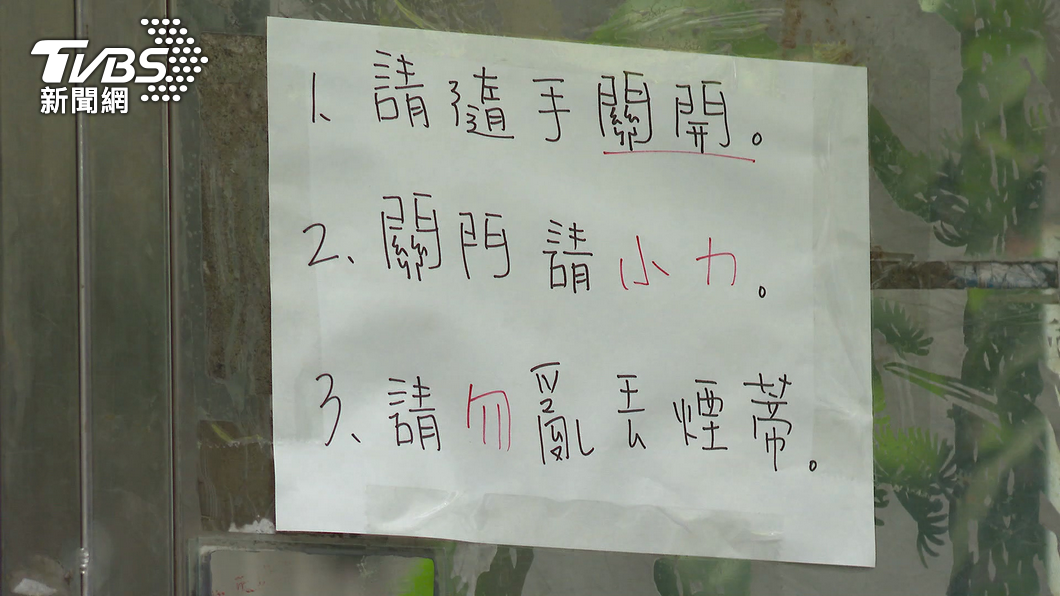 TVBS
新聞網
1、請隨手關開。
2、關門請小力。
3、請勿亂丟煙蒂。